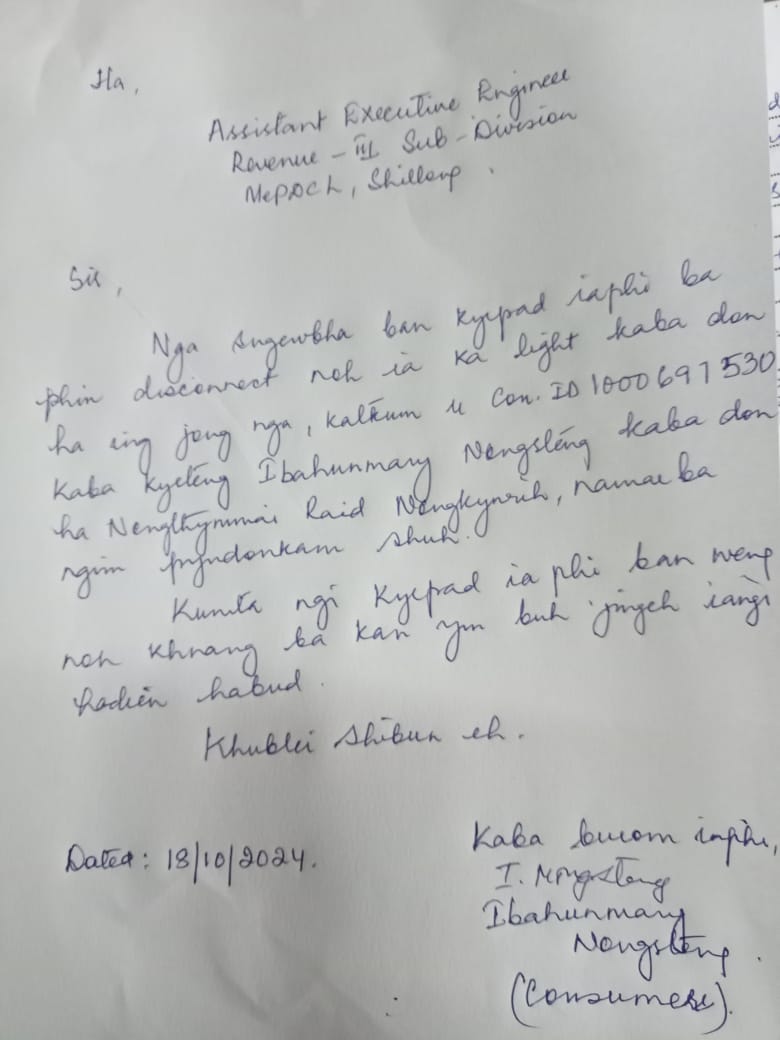 Ha,
Assistant Executive Engineer
Revenue - III Sub-Division
MePDCL, Shillong.
Sir,
Nga sngewbha ban kyrpad iaphi ba
phin disconnect noh ia ka light kaba don
ha ing jong nga, kalkum u Con. ID 1000697530
kaba kyrteng Ibahunmary Nongsteng kaba don
ha Nongthymmai Raid Nongkynrih, namar ba
ngim pyndonkam shuh.
Kumta ngi kyrpad ia phi ban weng
noh khnang ba kan ym buh jingeh iangi
hadien habud.
Khublei shibun eh.
Dated: 18/10/2024.
Kaba burom iaphi,
I. Nongsteng
Ibahunmary
Nongsteng.
(Consumer).